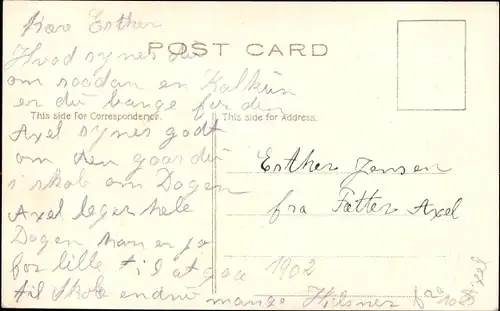 Kære Esther
POST CARD
Hvad synes du
om saadan en Kalkun
er du bange for den
This side for Correspondence.
This side for Address.
Axel synes godt
om den gaar du
i skole om Dagen
Axel leger hele
Dagen han er jo
for lille til at gaa
til Skole endnu mange Hilsner fra
Axel
Esther Jensen
fra Fætter Axel
1902